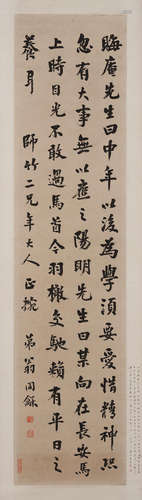 晦庵先生曰中年以後為學須要愛惜精神恐
忽有大事無以應之陽明先生曰某向在長安馬
上時目光不敢過馬首今羽檄交馳賴有平日之
養耳
師竹二兄年大人正腕
弟翁同龢